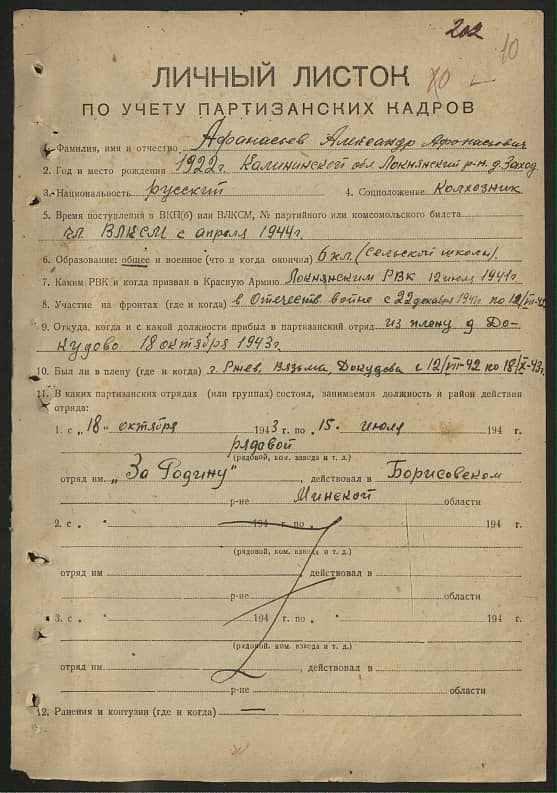 202
10
ЛИЧНЫЙ ЛИСТОК
ПО УЧЕТУ ПАРТИЗАНСКИХ КАДРОВ
1. Фамилия, имя и отчество Афанасьев Александр Афанасьевич
2. Год и место рождения 1922 г. Калининской обл Локнянский р-н. д. Заход
3. Национальность русский 4. Соцположение Колхозник
5. Время поступления в ВКП(б) или ВЛКСМ, № партийного или комсомольского билета
чл. ВЛКСМ с апреля 1944 г.
6. Образование: общее и военное (что и когда окончил) 6 кл. (сельской школы).
7. Каким РВК и когда призван в Красную Армию Локнянским РВК 12 июля 1941 г.
8. Участие на фронтах (где и когда) в Отечеств войне с 22 декабря 1941 г по 12/VIII-42
9. Откуда, когда и с какой должности прибыл в партизанский отряд из плену д До-
кудово 18 октября 1943 г.
10. Был ли в плену (где и когда) г. Ржев, Вязьма, Докудова с 12/VIII-42 по 18/X-43 г.
11. В каких партизанских отрядах (или группах) состоял, занимаемая должность и район действия
отряда:
1. с „18" октября 1943 г. по „15" июля 194 г.
рядовой
(рядовой, ком. взвода и т. д.)
отряд им „За Родину", действовал в Борисовском
р-не Минской области
2. с „ " 194 г. по „ " 194 г.
(рядовой, ком. взвода и т. д.)
отряд им , действовал в
р-не области
3. с „ " 194 г. по „ " 194 г.
(рядовой, ком. взвода и т. д.)
отряд им , действовал в
р-не области
12. Ранения и контузии (где и когда) —